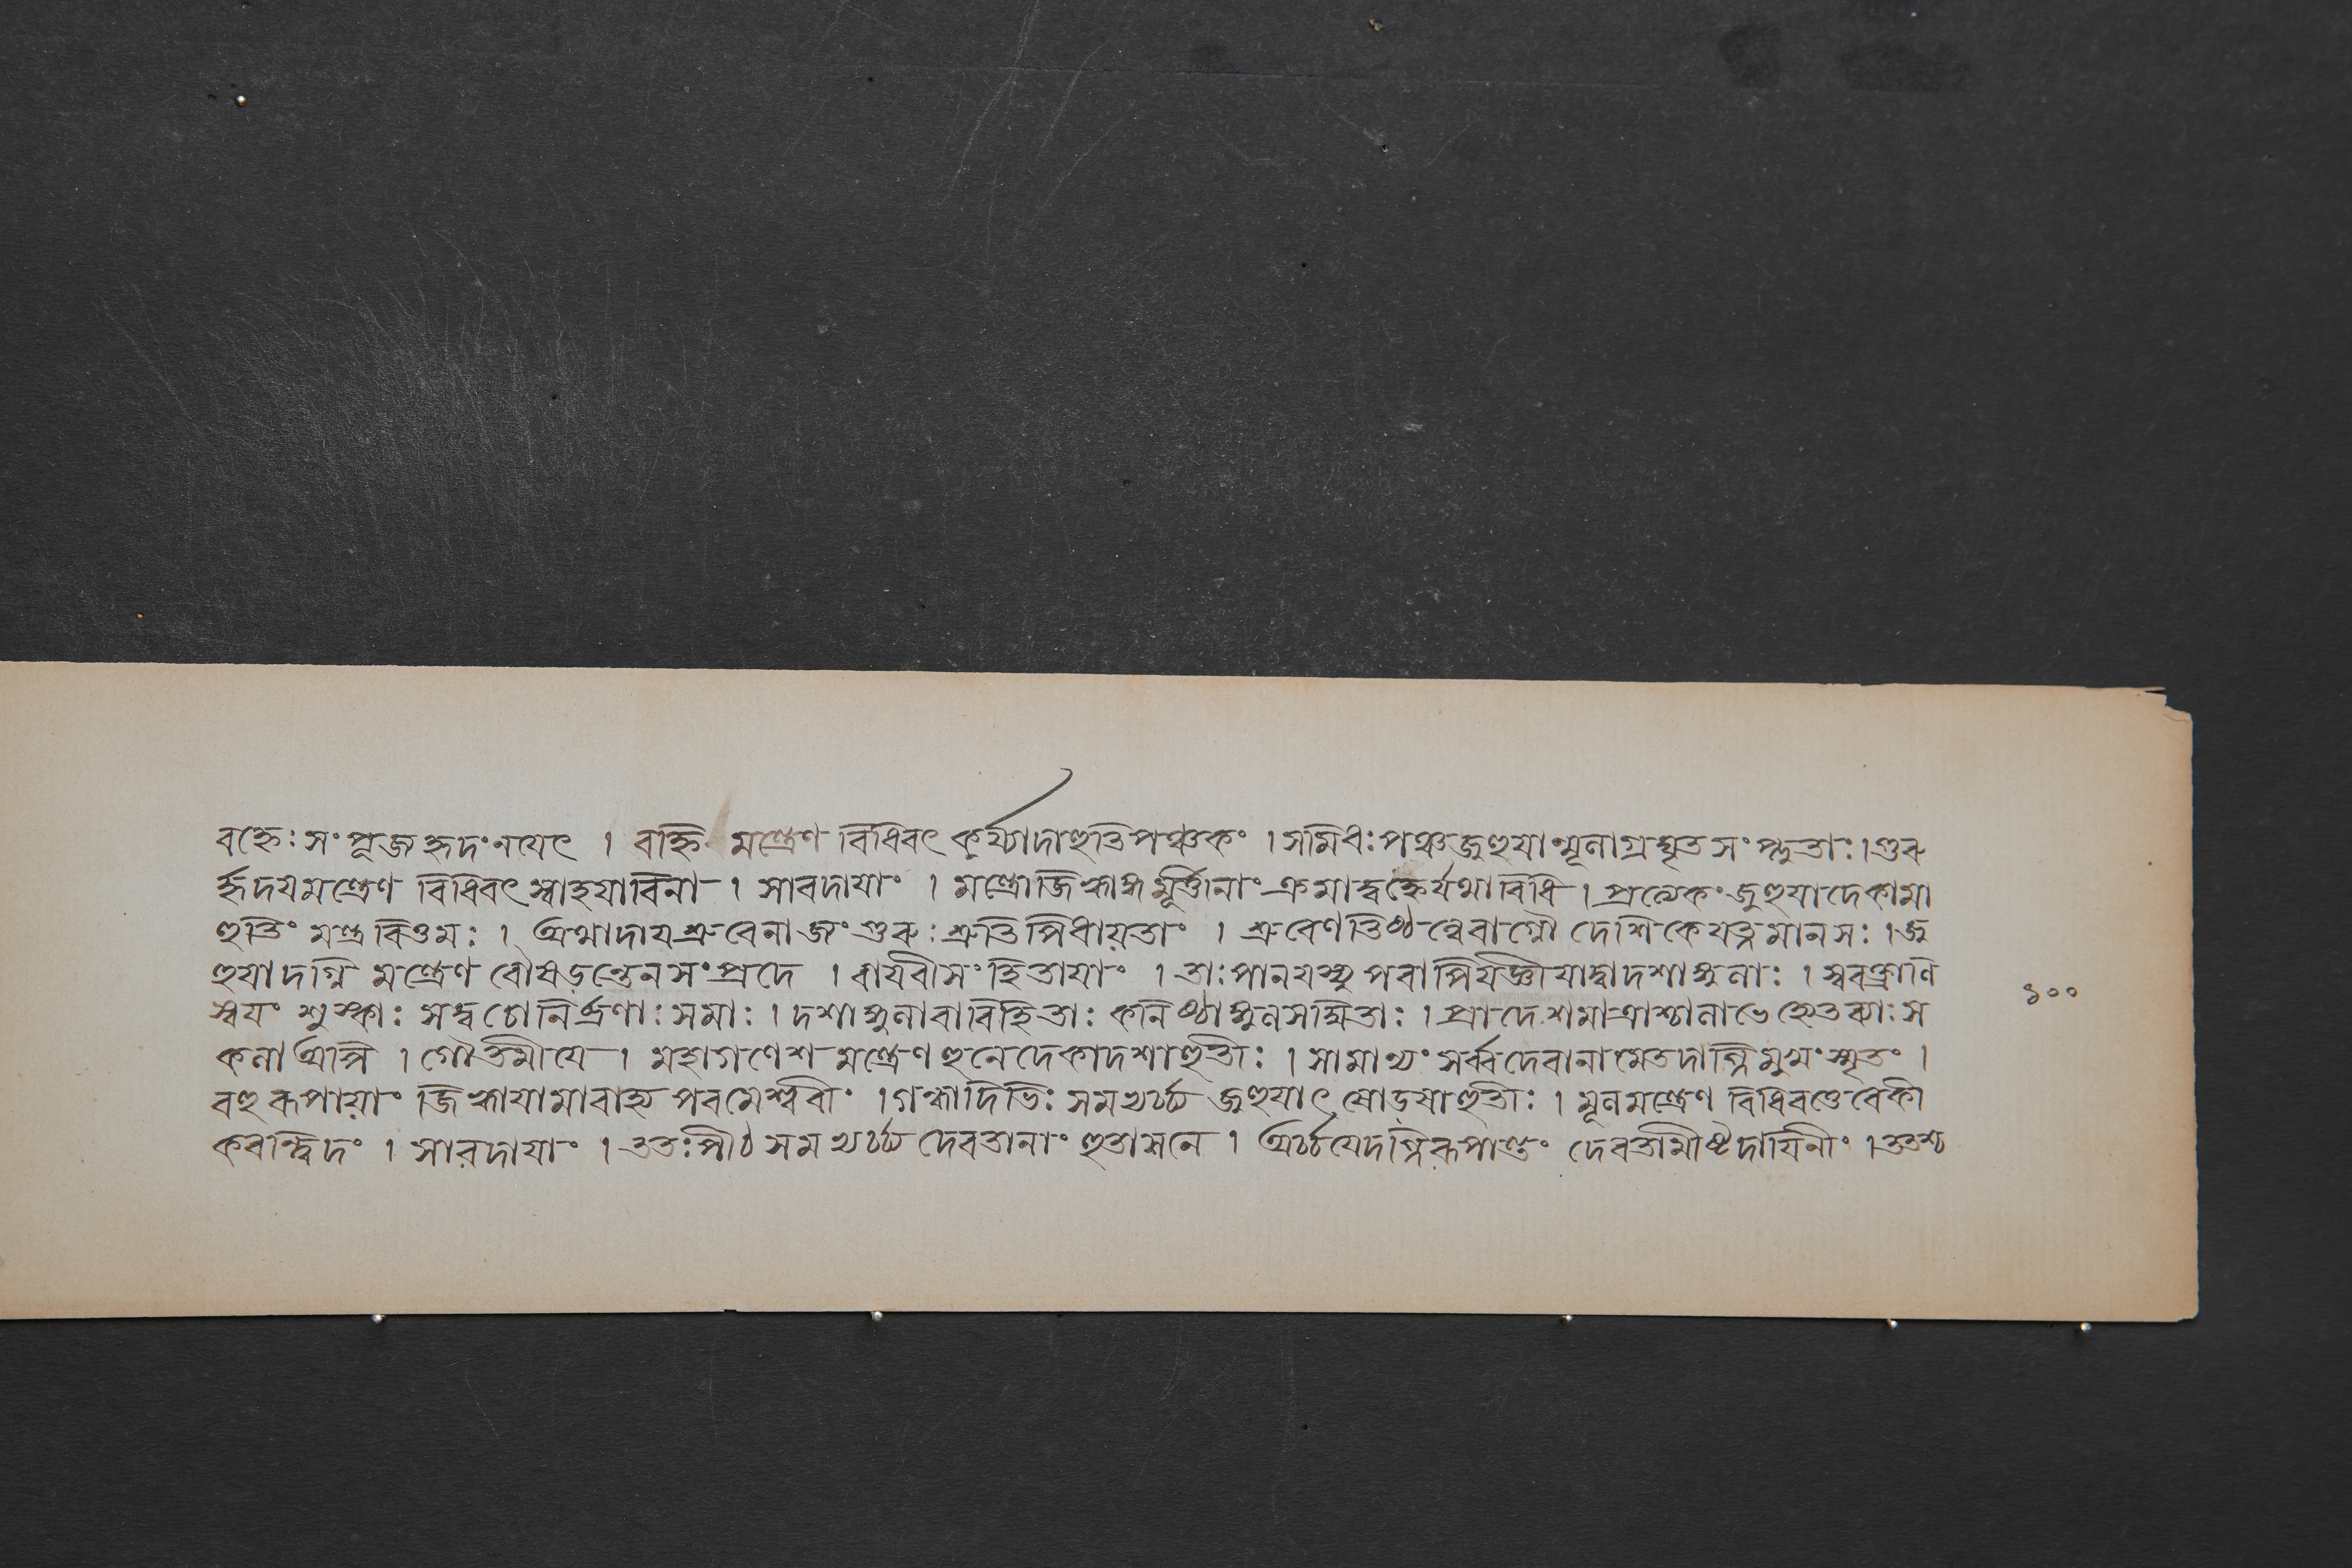 বহ্নেঃ সংপূজ হৃদং নযেৎ । বহ্নি মন্ত্রেণ বিধিবৎ কুর্য্যাদাহুতিপঞ্চকং । সমিধঃ পঞ্চ জুহুযান্মূলাগ্রঘৃত সংপ্লুতাঃ । গুরু
র্হৃদযমন্ত্রেণ বিধিবৎ স্বাহযাবিনা । সাবদাযাং । মন্ত্রোজিহ্বাঙ্গ মূর্ত্তীনাং ক্রমাদ্বহ্নের্যথাবিধি । প্রত্যেকং জুহুযাদেকামা
হুতিং মন্ত্র বিত্তমঃ । অথাদায শ্রুবেনাজং গুরুঃ শ্রুতিপিধায়তাং । শ্রুবেণ তিষ্ঠন্বেবাগ্নৌ দেশিকেযত্নমানসঃ । জু
হুযাদগ্নি মন্ত্রেণ বৌষড়ন্তেন সংপ্রদে । বাযবীসংহিতাযাং । তাঃ পালযস্থু পবাপিযজ্ঞীযাদ্বাদশাঙ্গুলাঃ । স্ববক্রাণি
স্বযং শুস্কাঃ সত্ব চোনির্ব্রণাঃ সমাঃ । দশাঙ্গুলাবাবিহিতাঃ কনিষ্ঠাঙ্গুলসম্মিতাঃ । প্রাদেশমাত্রাশ্চালাভে হোতব্যাঃ স
কলা অপি । গৌতমীযে । মহাগণেশ মন্ত্রেণ হুনেদেকাদশাহুতীঃ । সামান্যং সর্ব্ব দেবানামেতদগ্নিমুখং স্মৃতং ।
বহুরূপায়াং জিহ্বাযামাবাহ্য পবমেশ্ববীং । গন্ধাদিভিঃ সমভ্যর্চ্চ্য জুহুযাৎ ষোড়ষাহুতীঃ । মূলমন্ত্রেণ বিধিবত্তেবেকী
করন্ত্বিদং । সারদাযাং । ততঃ পীঠ সমভ্যর্চ্চ্য দেবতানাং হুতাসনে । অর্চ্চযেদগ্নিরূপান্তাং দেবতামীষ্টদাযিনীং । ততশ্চ
১০০